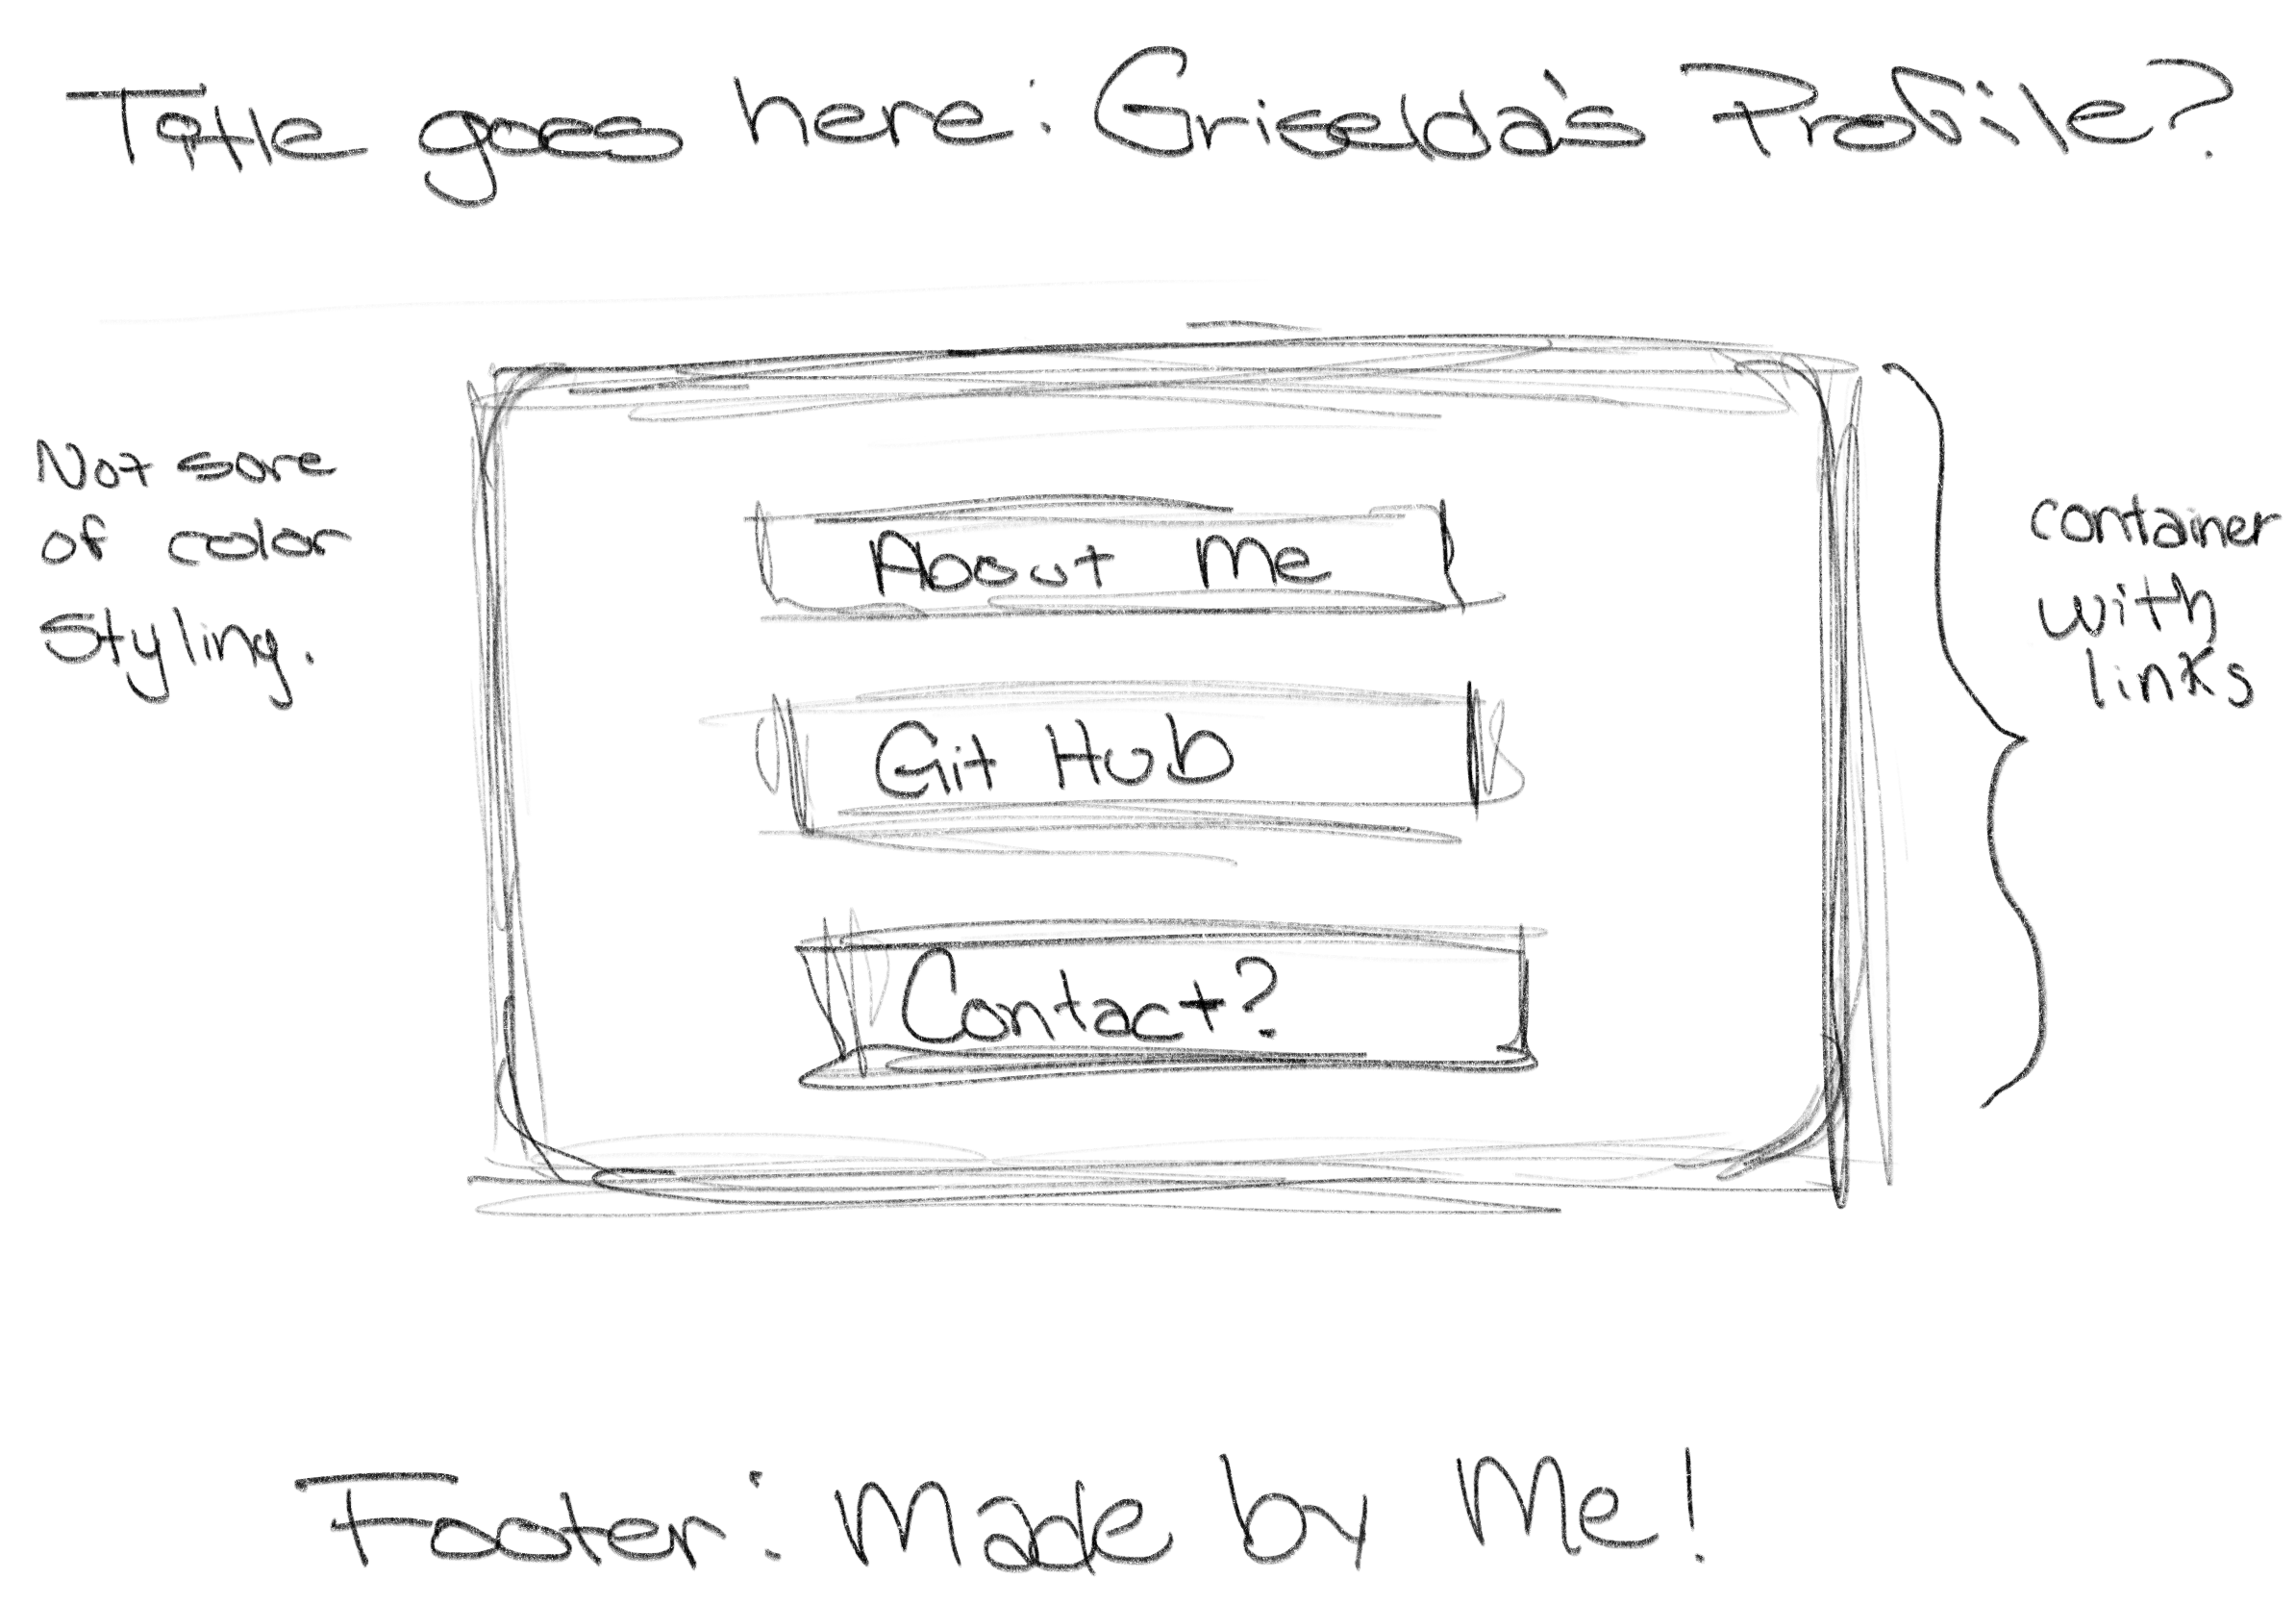 Title goes here: Griselda's Profile?
Not sure
of color
styling.
About Me
Git Hub
Contact?
container
with
links
Footer: Made by Me!